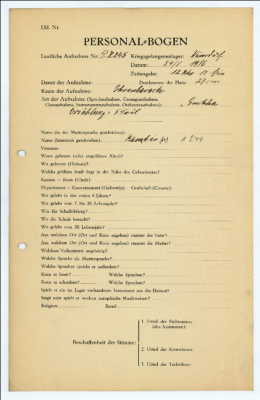 Lfd. Nr.
PERSONAL-BOGEN
Lautliche Aufnahme Nr. Kriegsgefangenenlager:
Datum: 1916
Zeitangabe: 12 Uhr
Dauer der Aufnahme: Durchmesser der Platte:
Raum der Aufnahme:
Art der Aufnahme (Sprechaufnahme, Gesangsaufnahme,
Choraufnahme, Instrumentenaufnahme, Orchesteraufnahme):
Name (in der Muttersprache geschrieben):
Name (lateinisch geschrieben):
Vorname:
Wann geboren (oder ungefähres Alter)?
Wo geboren (Heimat)?
Welche größere Stadt liegt in der Nähe des Geburtsortes?
Kanton — Kreis (Ujezd):
Departement — Gouvernement (Gubernija) — Grafschaft (County):
Wo gelebt in den ersten 6 Jahren?
Wo gelebt vom 7. bis 20. Lebensjahr?
Was für Schulbildung?
Wo die Schule besucht?
Wo gelebt vom 20. Lebensjahr?
Aus welchem Ort (Ort und Kreis angeben) stammt der Vater?
Aus welchem Ort (Ort und Kreis angeben) stammt die Mutter?
Welchem Volksstamm angehörig?
Welche Sprache als Muttersprache?
Welche Sprachen spricht er außerdem?
Kann er lesen? Welche Sprachen?
Kann er schreiben? Welche Sprachen?
Spielt er ein im Lager vorhandenes Instrument aus der Heimat?
Singt oder spielt er modern europäische Musikweisen?
Religion: Beruf:
1. Urteil des Fachmannes
(des Assistenten):
Beschaffenheit der Stimme:
2. Urteil des Kommissars:
3. Urteil des Technikers: